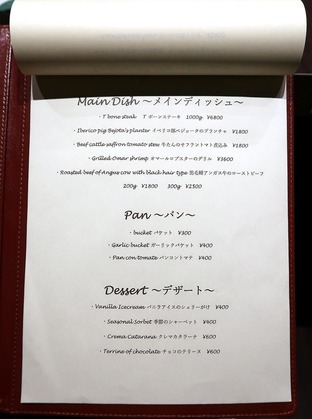 Main Dish ～メインディッシュ～
・T bone steak　Tボーンステーキ　1000g　¥6800
・Iberico pig Bejota's planter イベリコ豚ベジョータのプランチャ　¥1800
・Beef cattle saffron tomato stew 牛たんのサフラントマト煮込み　¥1800
・Grilled Omar shrimp オマールロブスターのグリル　¥3600
・Roasted beef of Angus cow with black hair type 黒毛種アンガス牛のローストビーフ
200g　¥1800　300g　¥2500
Pan ～パン～
・bucket バケット　¥300
・Garlic bucket ガーリックバケット　¥400
・Pan con tomate パンコントマテ　¥400
Dessert ～デザート～
・Vanilla Icecream バニラアイスのシェリーがけ　¥400
・Seasonal Sorbet 季節のシャーベット　¥400
・Crema Catarana クレマカタラーナ　¥600
・Terrine of chocolate チョコのテリーヌ　¥600